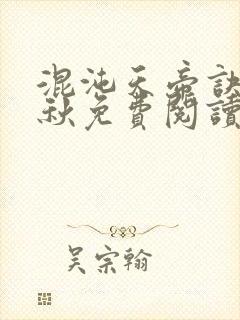 混沌天帝訣
秋免費閱讀
吴宗翰